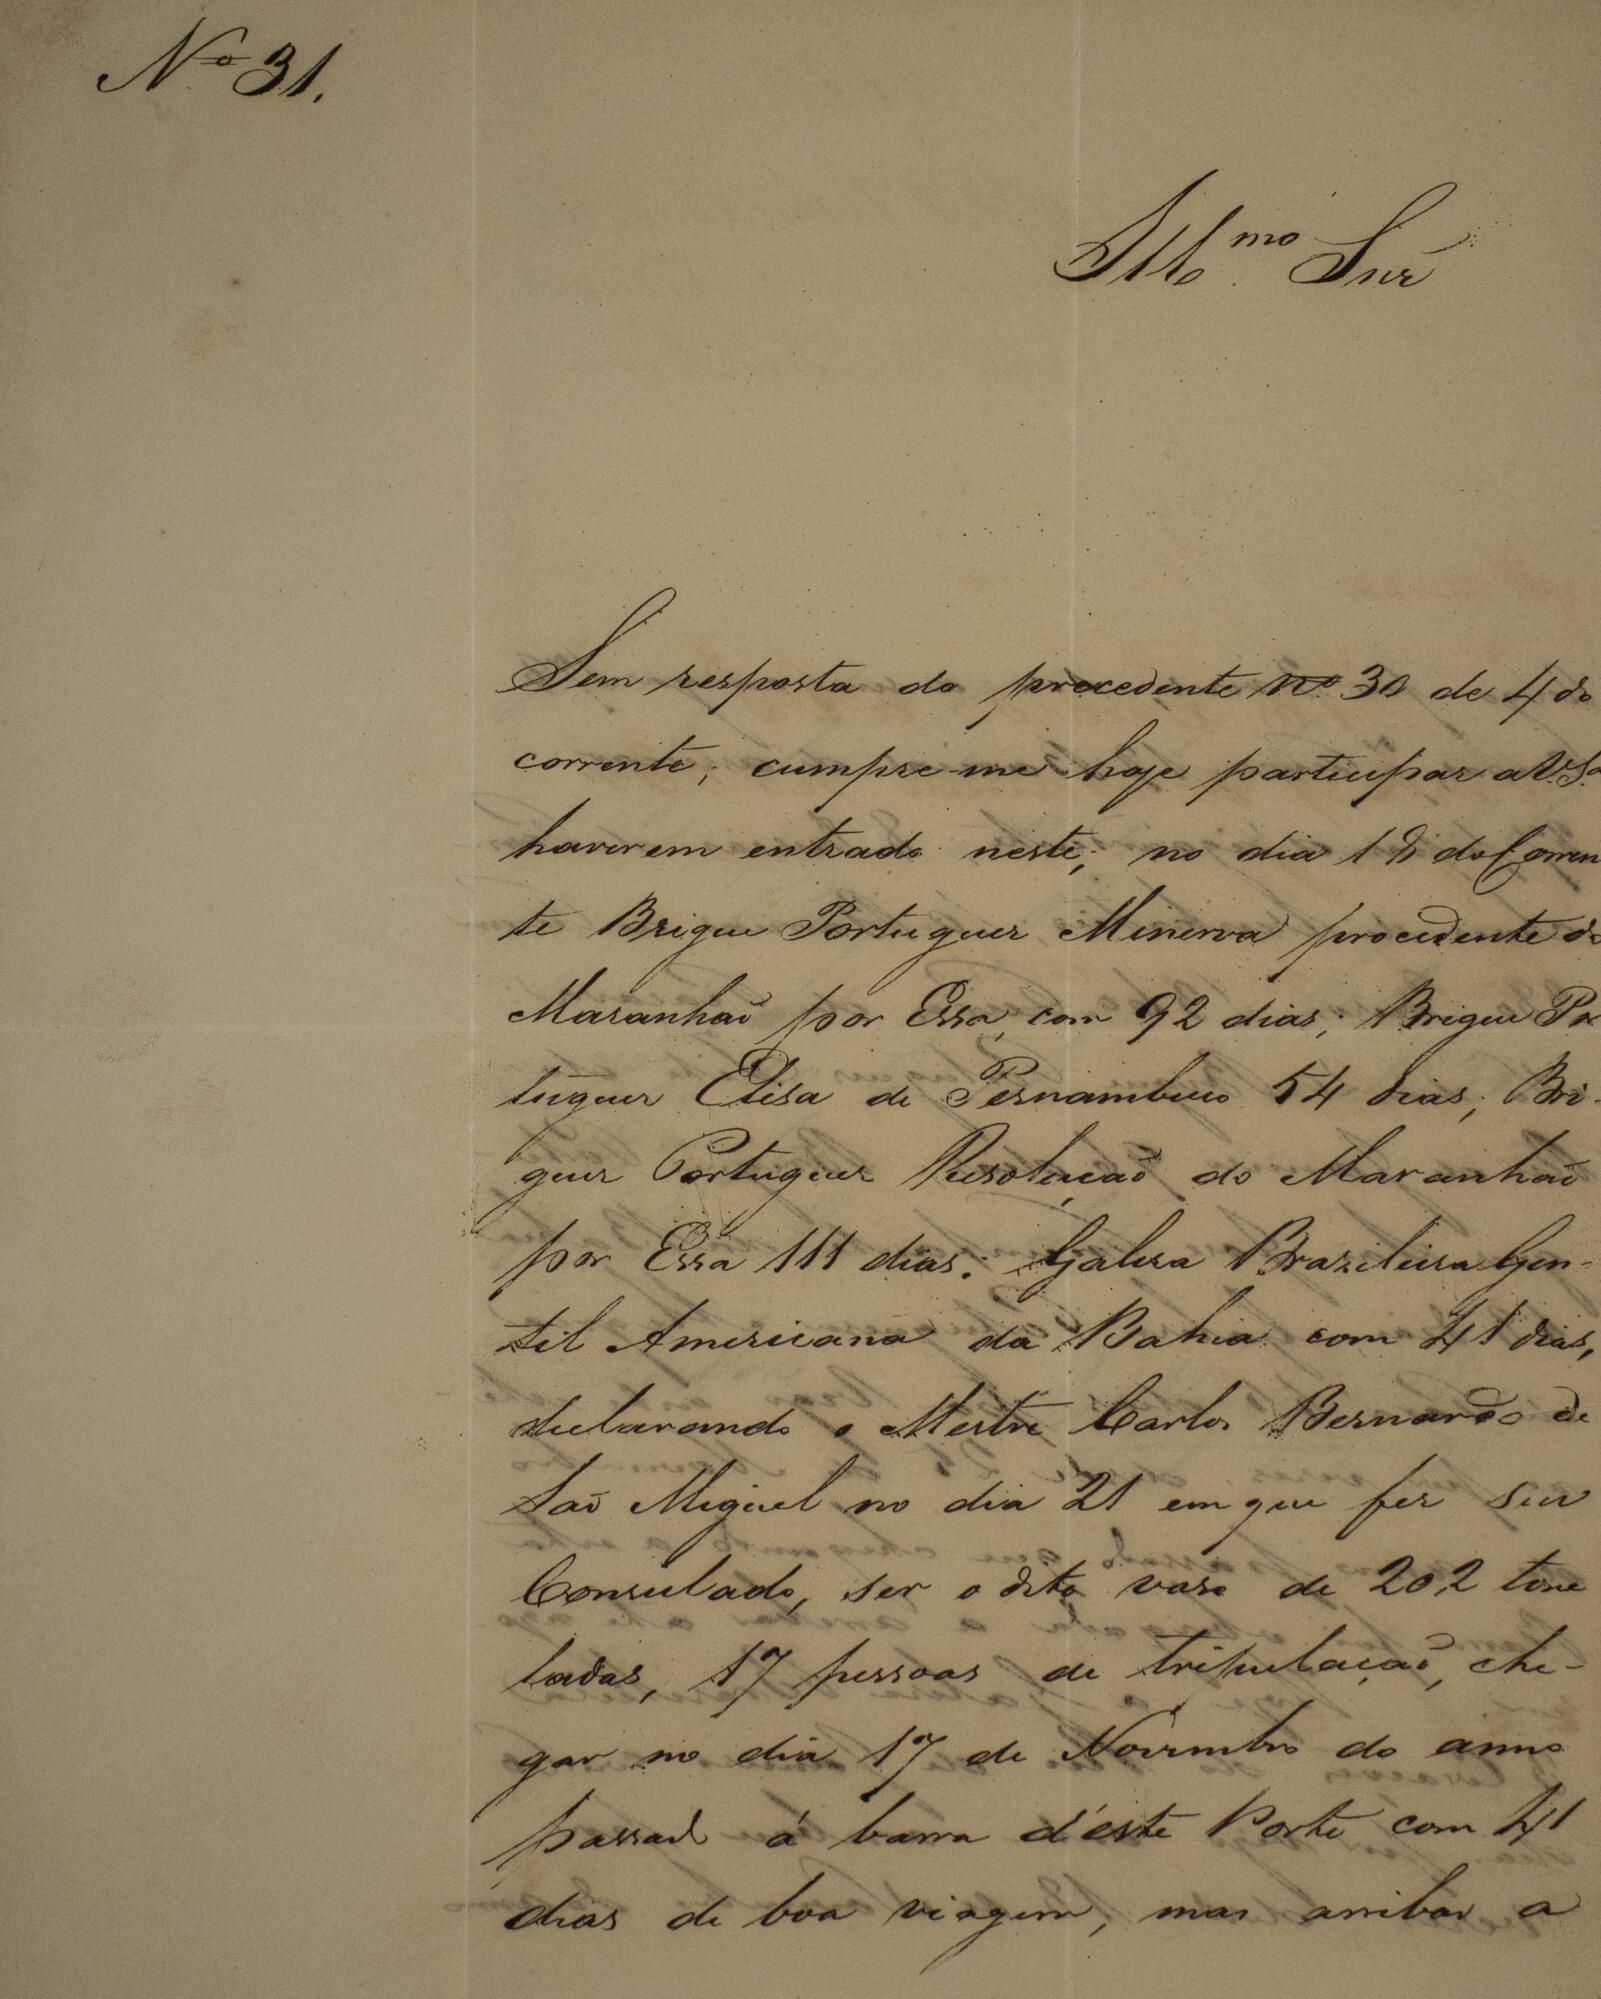 Nº 31.
Illmo. Snr
Sem resposta do precedente nº 30 de 4 do
corrente, cumpre-me hoje participar a V.Sa
haverem entrado neste, no dia 18 do Corren
te Brigue Portuguez Minerva procedente do
Maranhaõ por Essa, com 92 dias; Brigue Por
tuguez Elisa de Pernambuco 54 dias; Bri-
gue Portuguez Resoluçaõ do Maranhaõ
por Essa 111 dias: Galera Brazileira Gen-
til Americana da Bahia com 41 dias,
declarando o Mestre Carlos Bernardo de
Saõ Miguel no dia 21 em que fez seu
Consulado, ser o dito vaso de 202 tone
ladas, 17 pessoas de tripulaçaõ, che-
gar no dia 17 de Novembro do anno
passado á barra d'este Porto com 41
dias de boa viagem, mas arribar a